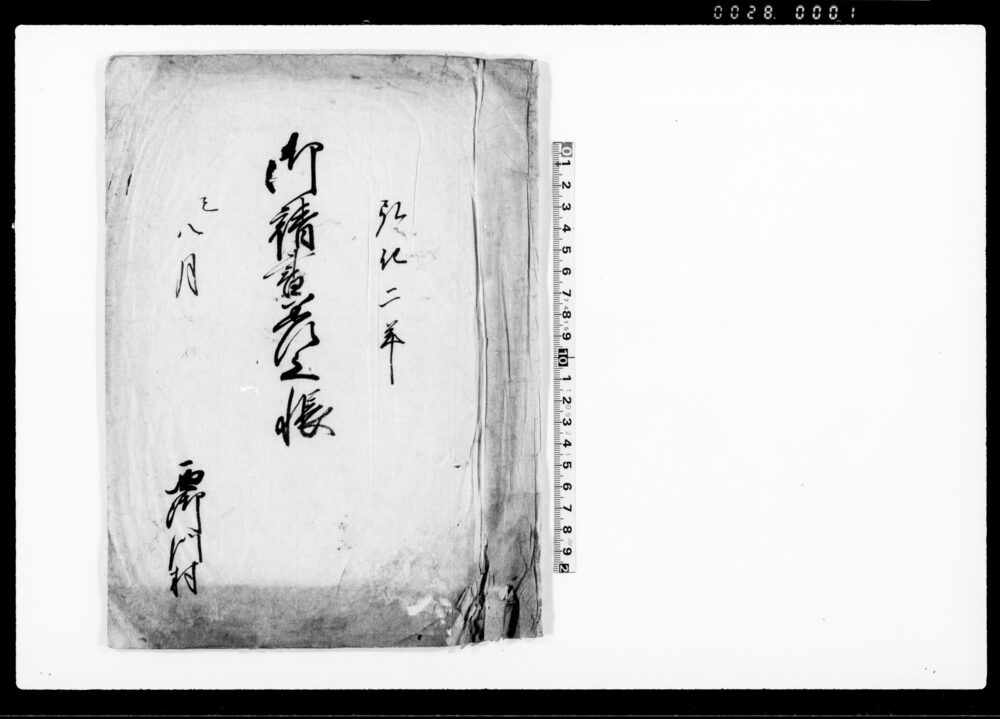 0028 0001
弘化二年
御請書差上帳
巳八月
西御門村
0 1 2 3 4 5 6 7 8 9 10 1 2 3 4 5 6 7 8 9 2